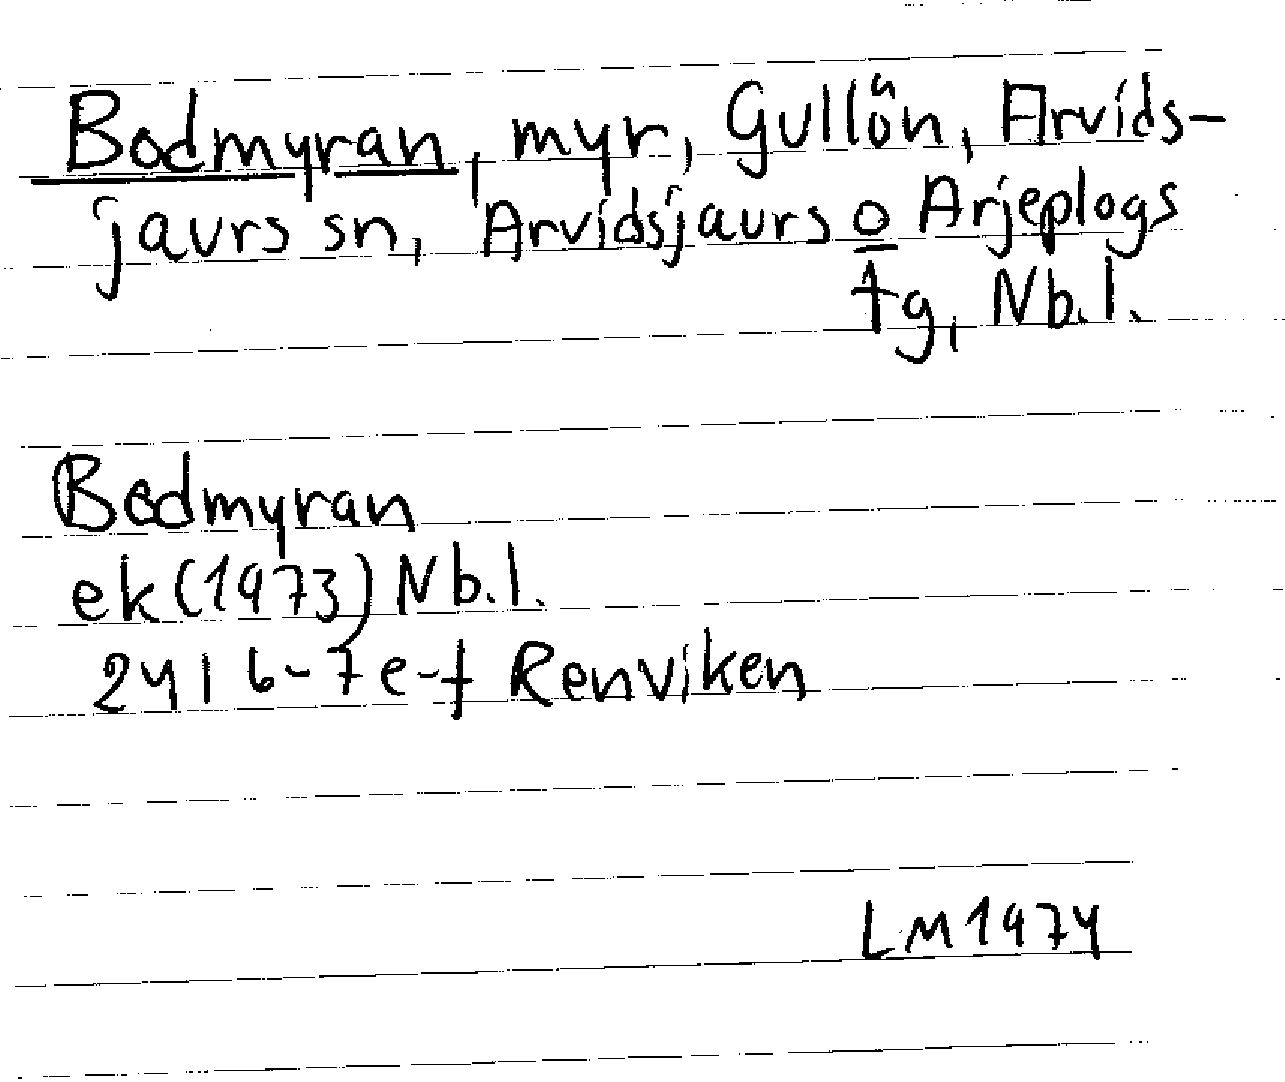 Bodmyran, myr, Gullön, Arvids-
jaurs sn, Arvidsjaurs o Arjeplogs
tg, Nb.l.
Bodmyran
ek (1973) Nb.l.
24I 6-7e-f Renviken
LM 1974